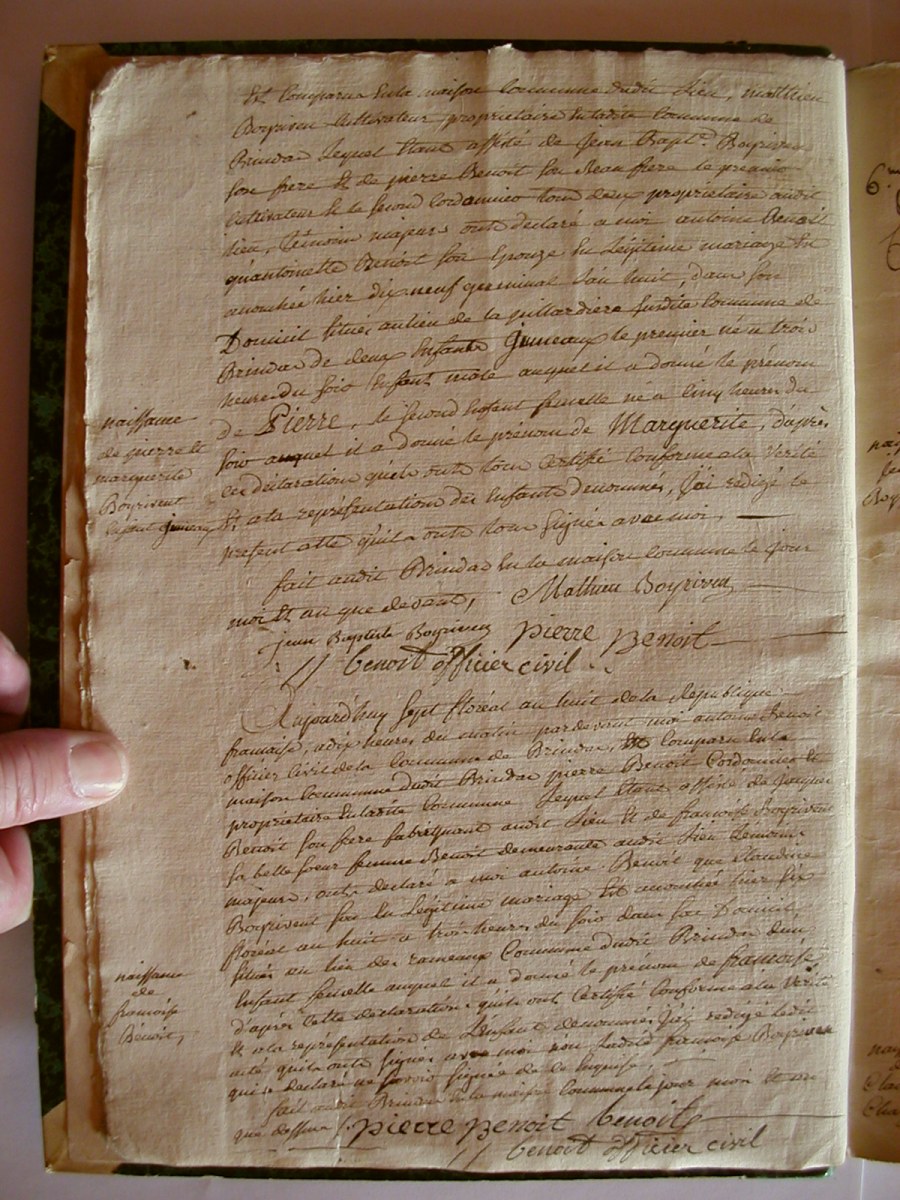 Est comparu en la maison commune dudit lieu, mathieu
Boyriven Cultivateur proprietaire en ladite Commune de
Brindas lequel étant assisté de Jean Bapt.e Boyriven
son frere et de pierre Benoit son beau frere le premier
Cultivateur et le second Cordonnier tous deux propriétaire audit
lieu, témoins majeurs ont déclaré a moi antoine Benoit
qu'antoinette Benoit son Epouze en légitime mariage est
acouchée hier dix neuf germinal l'an huit, dans son
Domicil situé au lieu de la pillardiere susdite Commune de
Brindas de deux enfants Jumeaux le premier né a trois
heures du soir enfant mâle auquel il a donné le prénom
de Pierre, le second enfant femelle né a Cinq heures du
soir auquel il a donné le prénom de Marguerite, d'après
ces déclarations qu'ils ont tous Certifié Conforme a la Vérité
et a la représentation des enfants denommés, j'ai redigé le
present acte qu'ils ont tous signés avec moi,
fait audit Brindas en la maison Commune le jour
mois et an que devant, Mathieu Boyriven
jean Baptiste Boyriven pierre Benoit
benoit officier civil
naissance
de pierre et
marguerite
Boyrivent
enfant jumeaux
Aujourd'huy sept floréal an huit de la République
francaise, a dix heures du matin pardevant moi antoine Benoit
officier Civil de la Commune de Brindas, Est Comparu en la
maison Commune dudit Brindas pierre Benoit Cordonnier et
proprietaire en ladite Commune lequel étant assisté de jacques
Benoit son frere fabriquant audit lieu et de francoise Boyrivent
sa belle soeur femme Benoit demeurante audit lieu temoins
majeurs, ont déclaré a moi antoine Benoit que Claudine
Boyrivent son en légitime mariage Est acouchée hier six
floréal an huit a trois heures du soir dans son Domicil,
situé au lieu des rameaux Commune dudit Brindas d'un
Enfant femelle auquel il a donné le prénom de francoise,
d'après Cette déclaration qu'ils ont Certifié Conforme a la Vérité
et a la representation de l'Enfant denommé, j'ai redigé ledit
acte qu'ils ont signé avec moi non ladite francoise Boyriven
qui a declaré ne savoir signer de ce enquise,
fait audit Brindas en la maison Commune le jour mois et an
que dessus. pierre Benoit benoit
benoit officier civil
naissance
de
francoise
Bénoit,
6.